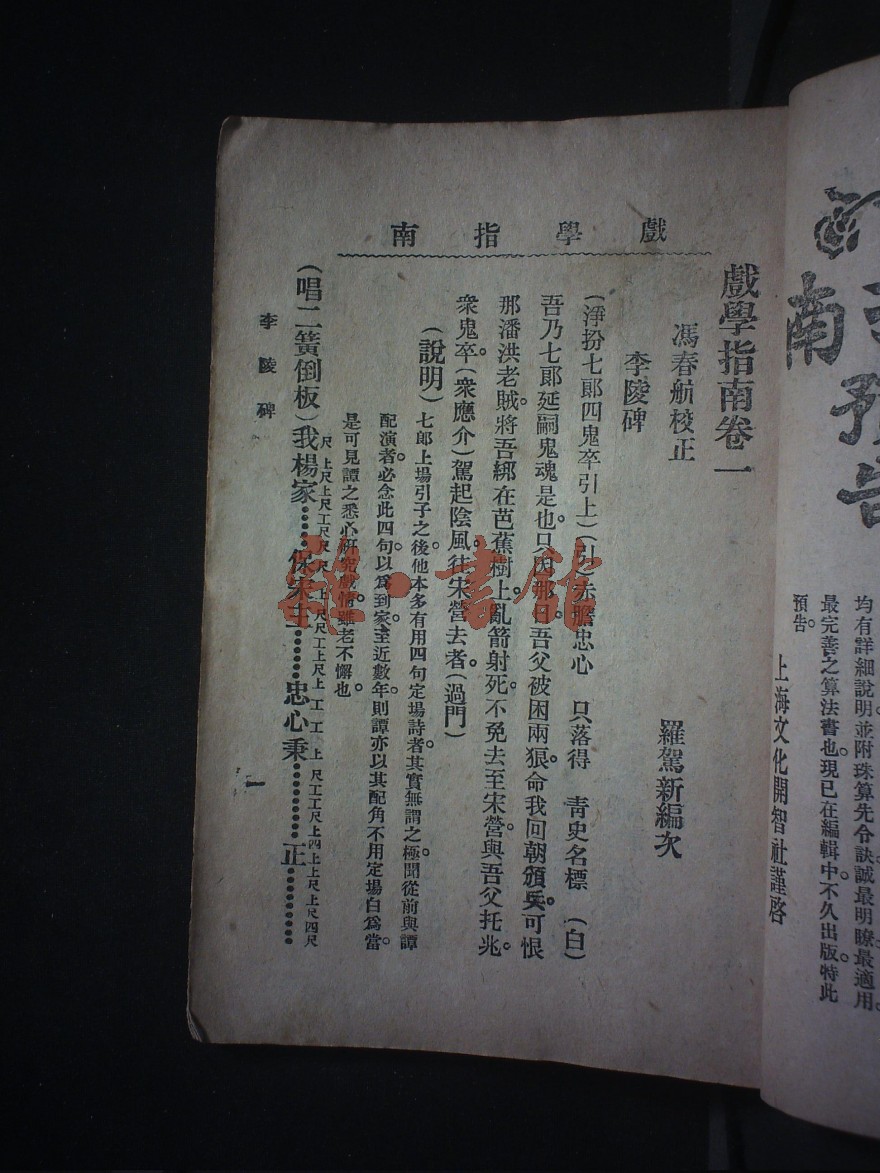 南
預告
均有詳細說明並附珠算先令訣誠最明瞭最適用。
最完善之算法書也。現已在編輯中不久出版特此
預告。
上海文化開智社謹啓
戲學指南
戲學指南卷一
馮春航校正
羅駕新編次
李陵碑
(淨扮七郎四鬼卒引上)(引)赤膽忠心 只落得 靑史名標 (白)
吾乃七郎延嗣鬼魂是也。只因那日吾父被困兩狼。命我回朝頒兵。可恨
那潘洪老賊。將吾綁在芭蕉樹上。亂箭射死。不免去至宋營。與吾父托兆。
衆鬼卒。(衆應介)駕起陰風往宋營去者(過門)
(說明)七郎上場引子之後。他本多有用四句定場詩者。其實無謂之極。聞從前與譚
配演者。必念此四句。以爲到家。至近數年。則譚亦以其配角不用定場白爲當。
是可見譚之悉心研究戲情。雖老不懈也。
尺 上尺上尺工尺 上尺 尺尺工上尺上 工 工 上 尺工工尺上四上上尺上尺四尺
(唱二簧倒板)我楊家……保宋主……忠心秉………正………
李陵碑
一
雜·書館